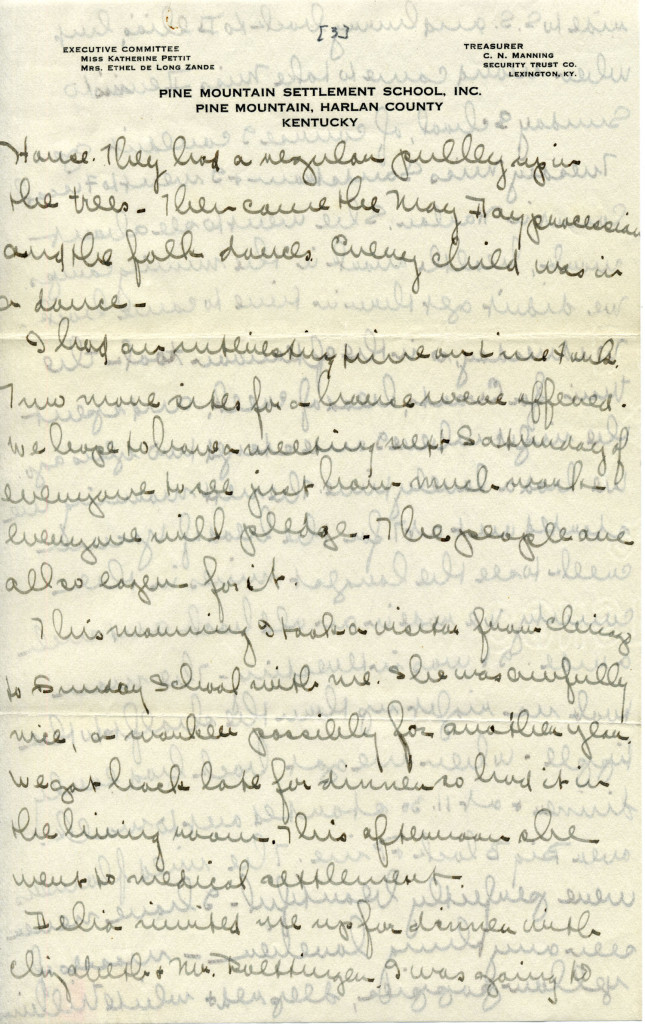 [3]
EXECUTIVE COMMITTEE
MISS KATHERINE PETTIT
MRS. ETHEL DE LONG ZANDE
TREASURER
C. N. MANNING
SECURITY TRUST CO.
LEXINGTON, KY.
PINE MOUNTAIN SETTLEMENT SCHOOL, INC.
PINE MOUNTAIN, HARLAN COUNTY
KENTUCKY
House. They had a regular pulley up in
the trees - Then came the May Day procession
and the folk dances. Every child was in
a dance -
I had an interesting time on Line Fork.
Two more sites for a house were offered.
We hope to have a meeting next Saturday of
everyone to see just how much work
everyone will pledge. The people are
all so eager for it.
This morning I took a visitor from Chicago
to Sunday School with me. She was awfully
nice, a worker possibly for another year.
We got back late for dinner so had it in
the living room. This afternoon she
went to medical settlement.
Delia invited me up for dinner with
Elizabeth & Mr. I was going to